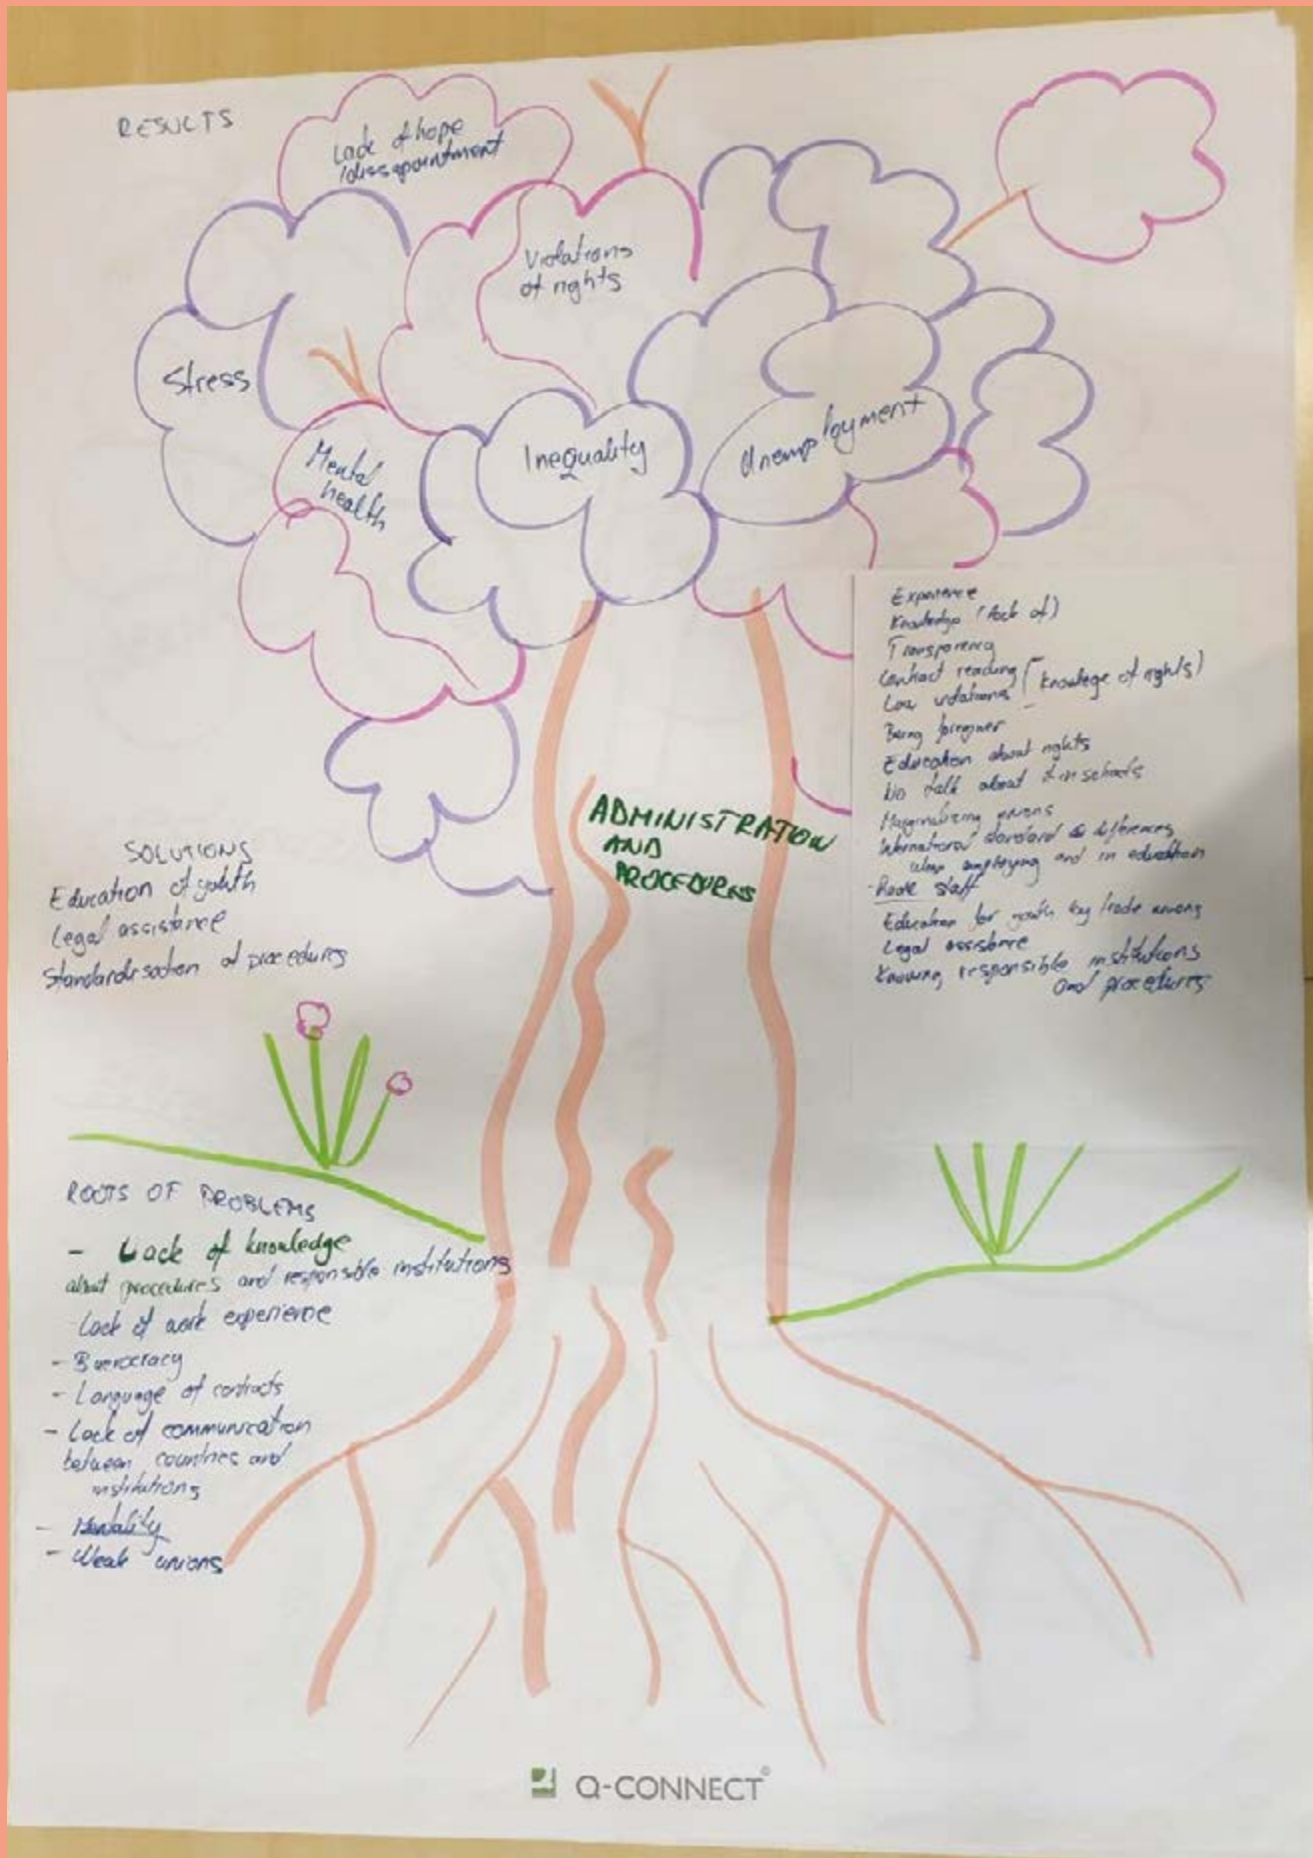 RESULTS
Lack of hope
/dissapointment
Violations
of rights
Stress
Mental
health
Inequality
Unemployment
Experience
Knowledge (lack of)
Transparency
Contract reading (knowlege of rights)
Law
Being foreigner
Education about rights
No talk about it in schools
Marginalizing unions
International standard differences
when employing and in education
staff
Education for youth by trade unions
Legal assistance
Knowing responsible institutions
and procedures
ADMINISTRATION
AND
PROCEDURES
SOLUTIONS
Education of youth
Legal assistance
Standardisation of procedures
ROOTS OF PROBLEMS
- Lack of knowledge
about procedures and responsible institutions
Lack of work experience
- Buerocracy
- Language of contracts
- Lack of communication
between countries and
institutions
- Mentality
- Weak unions
Q-CONNECT®